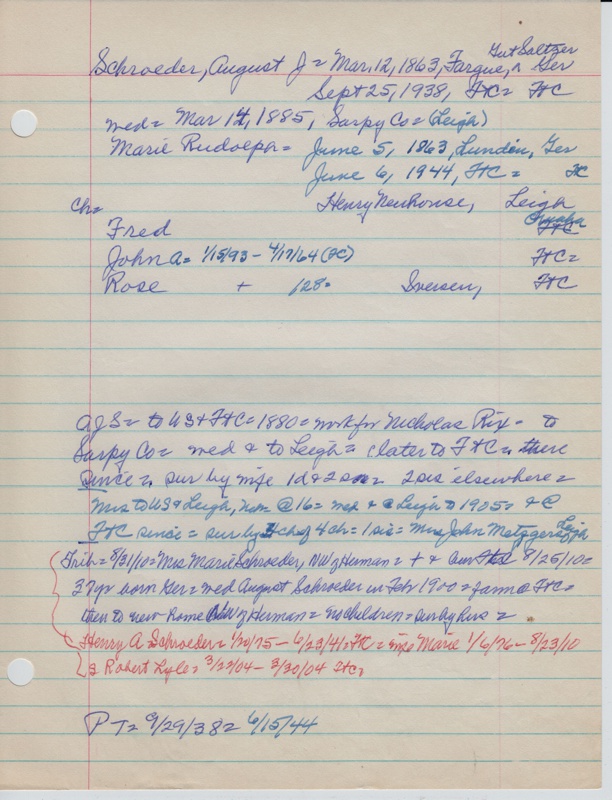 Gut Saltzer
Schroeder, August J = Mar, 12, 1863, Fargue, ^ Ger
Sept 25, 1938, FtC = FtC
wed = Mar 14, 1885, Sarpy Co = (Leigh)
Marie Rudolph = June 5, 1863, Lunden, Ger
June 6, 1944, FtC = FC
Ch= Henry Neuhouse, Leigh
Omaha
Fred FtC
John A = 1/15/93 - 4/17/64 (FC) FtC =
Rose + /28= Iversen, FtC
AJS = to US & FtC = 1880 = work for Nicholas Rix = to
Sarpy Co = wed & to Leigh = later to FtC = there
since = sur by wife 1d & 2 = 2 sis elsewhere =
Mrs to US & Leigh, Neb @ 16 = wed & @ Leigh to 1905 = & @
FtC since = sur by 3 ch of 4 ch = 1 sis = Mrs John Metzger Leigh
Trib = 8/31/10 = Mrs Marie Schroeder, NW of Human = + & bur 8/25/10 =
37yr born Ger = wed August Schroeder in Feb 1900 = farm @ FtC =
then to new Rome NW of Herman = no children = sur by hus =
Henry A Schroeder = 1/20/75 - 6/23/41 = FtC = wife Marie 1/6/76 - 8/23/10
Robert Lyle = 3/22/04 - 3/30/04 FtC =
PT = 9/29/38 = 6/15/44